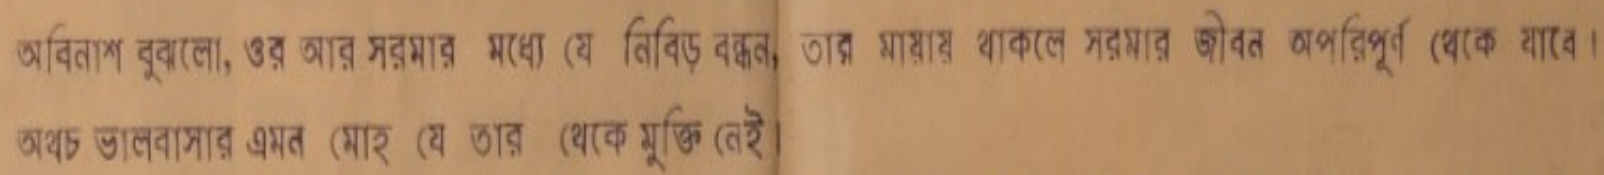 অবিনাশ বুঝলো, ওর আর সরমার মধ্যে যে নিবিড় বন্ধন, তার মায়ায় থাকলে সরমার জীবন অপরিপূর্ণ থেকে যাবে।
অথচ ভালবাসার এমন মোহ যে তার থেকে মুক্তি নেই।